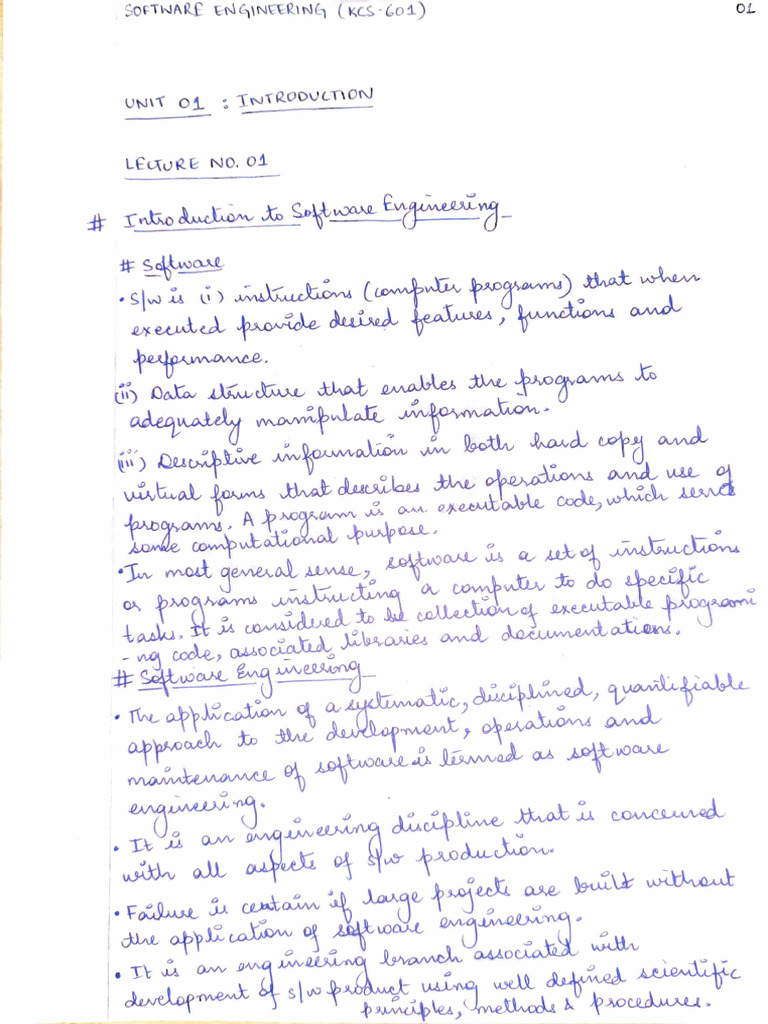 SOFTWARE ENGINEERING (KCS-601) 01
UNIT 01 : INTRODUCTION
LECTURE NO. 01
# Introduction to Software Engineering
# Software
• S/W is (i) instructions (computer programs) that when
executed provide desired features, functions and
performance.
(ii) Data structure that enables the programs to
adequately manipulate information.
(iii) Descriptive information in both hard copy and
virtual forms that describes the operations and use of
programs. A program is an executable code, which serves
some computational purpose.
• In most general sense, software is a set of instructions
or programs instructing a computer to do specific
tasks. It is considered to be collection of executable programmi
-ng code, associated libraries and documentations.
# Software Engineering
• The application of a systematic, disciplined, quantifiable
approach to the development, operations and
maintenance of software is termed as software
engineering.
• It is an engineering discipline that is concerned
with all aspects of s/w production.
• Failure is certain if large projects are built without
the application of software engineering.
• It is an engineering branch associated with
development of s/w product using well defined scientific
principles, methods & procedures.